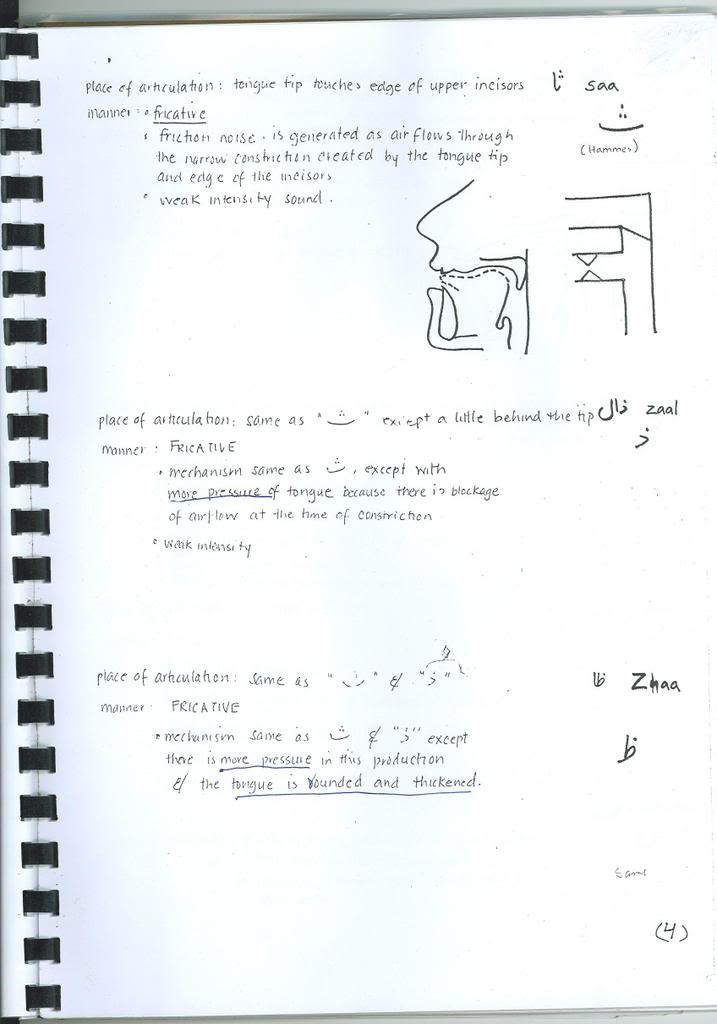 place of articulation : tongue tip touches edge of upper incisors ثا saa
manner : • fricative ث
(Hammes)
• friction noise . is generated as air flows through
the narrow constriction created by the tongue tip
and edge of the incisors
• weak intensity sound .
place of articulation : same as " ث " except a little behind the tip ذال zaal
ذ
manner : FRICATIVE
• mechanism same as ث , except with
more pressure of tongue because there is blockage
of airflow at the time of constriction
• weak intensity
place of articulation : same as " ث " & " ذ " ظا Zhaa
manner : FRICATIVE
• mechanism same as ث & "ذ" except ظ
there is more pressure in this production
& the tongue is rounded and thickened.
same
(4)